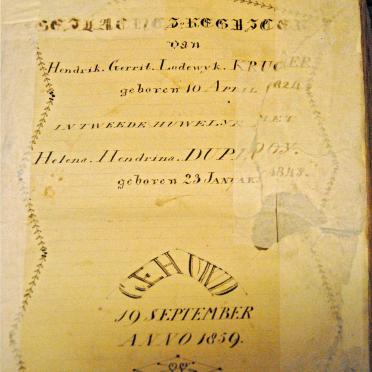 GESLACHTS-REGISTER
van
Hendrik. Gerrit. Lodewyk. KRUGER
geboren 10 APRIL 1824
IN TWEEDE HUWELYK MET
Helena. Hendrina. DUPLOOY.
geboren 23 JANUAR.
GEHUWD
19 SEPTEMBER
ANNO 1859.